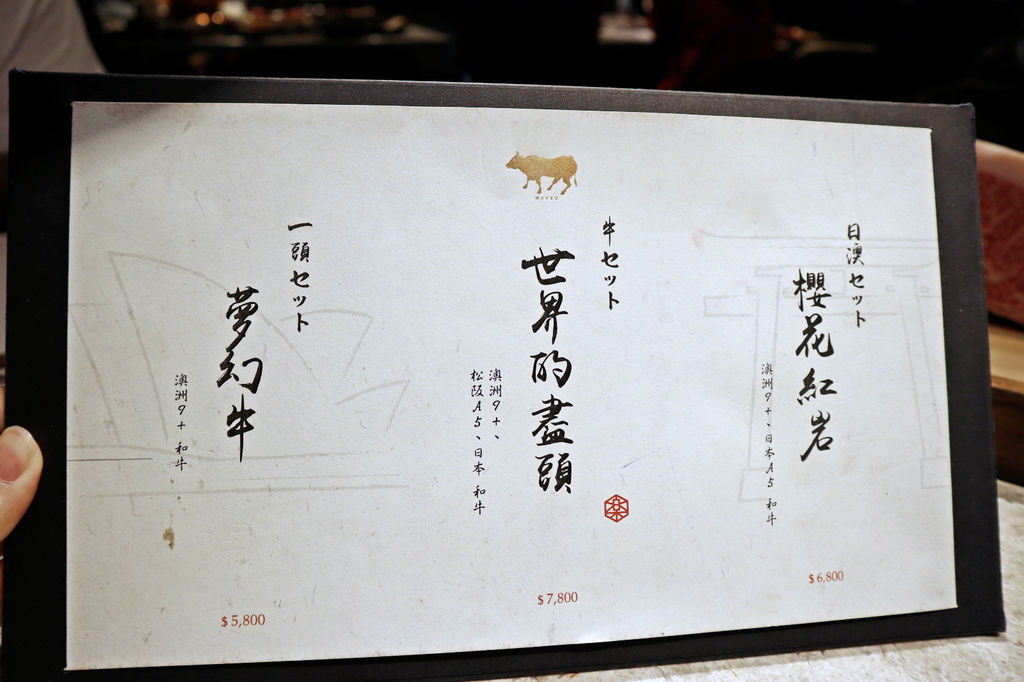 WAGYU
日澳セット
櫻花紅岩
澳洲9+、日本A5 和牛
$6,800
牛セット
世界的盡頭
澳洲9+、
松阪A5、日本 和牛
$7,800
一頭セット
夢幻牛
澳洲9+ 和牛
$5,800